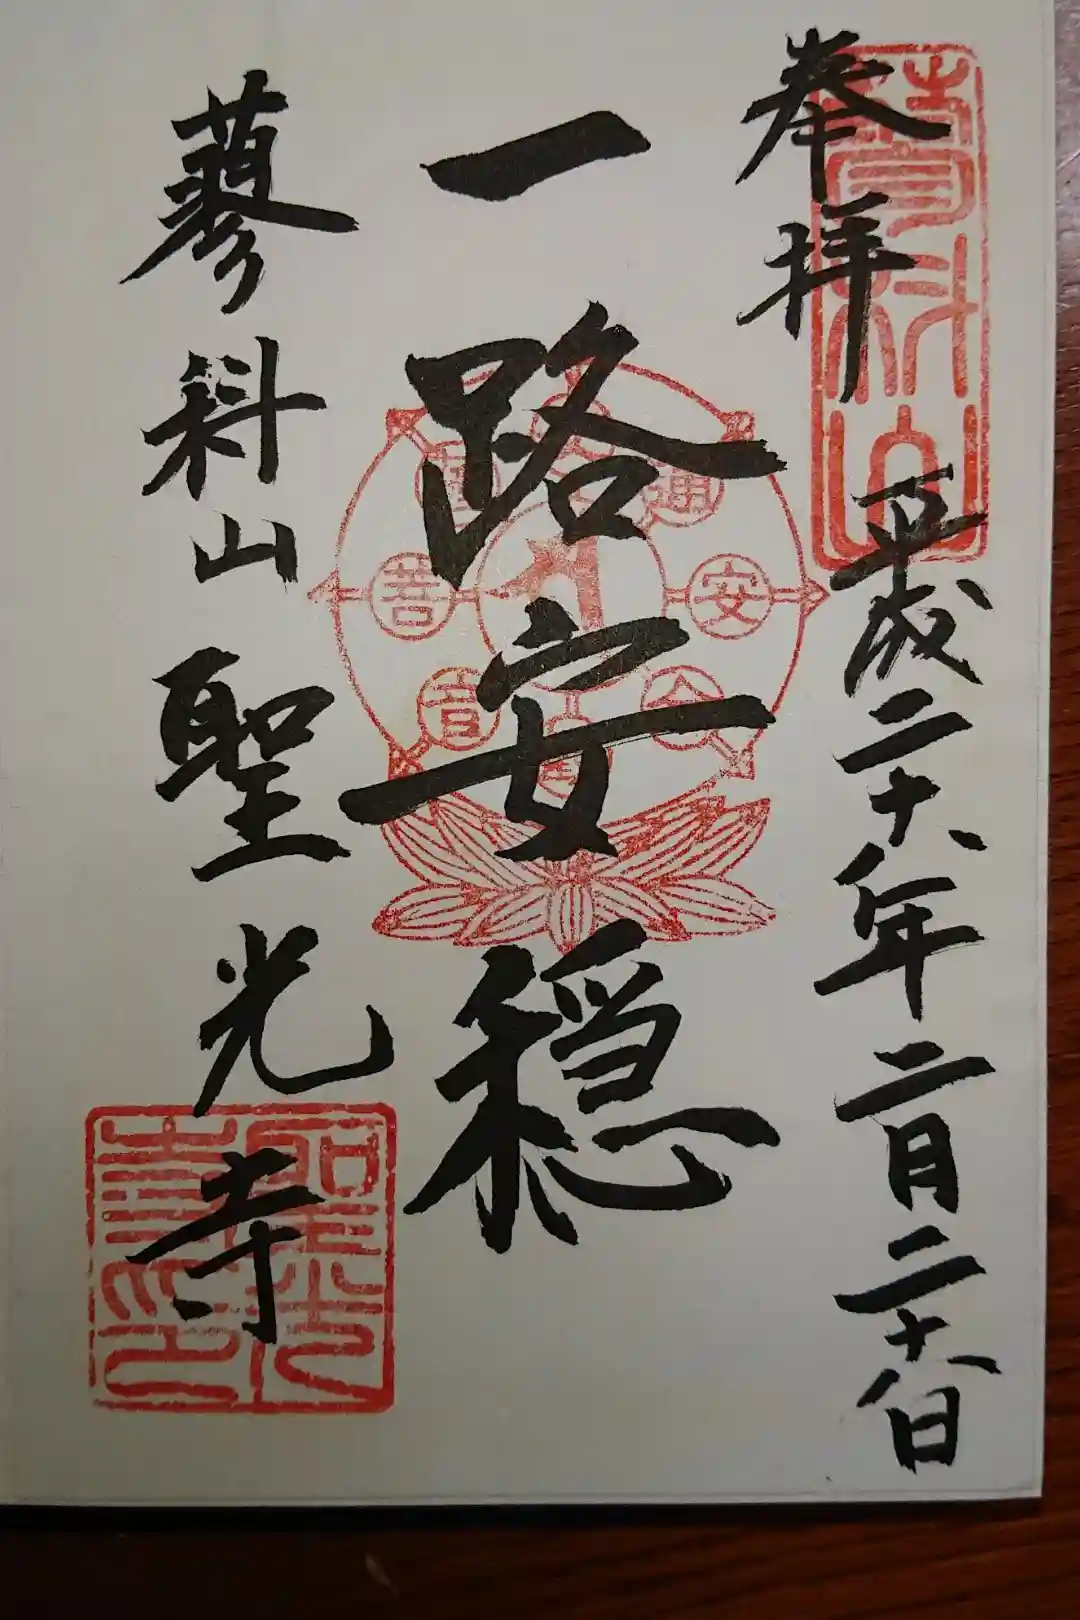 奉拝 平成二十八年二月二十八日
一路安穏
蓼科山 聖光寺
蓼科山
交通安全観音菩薩